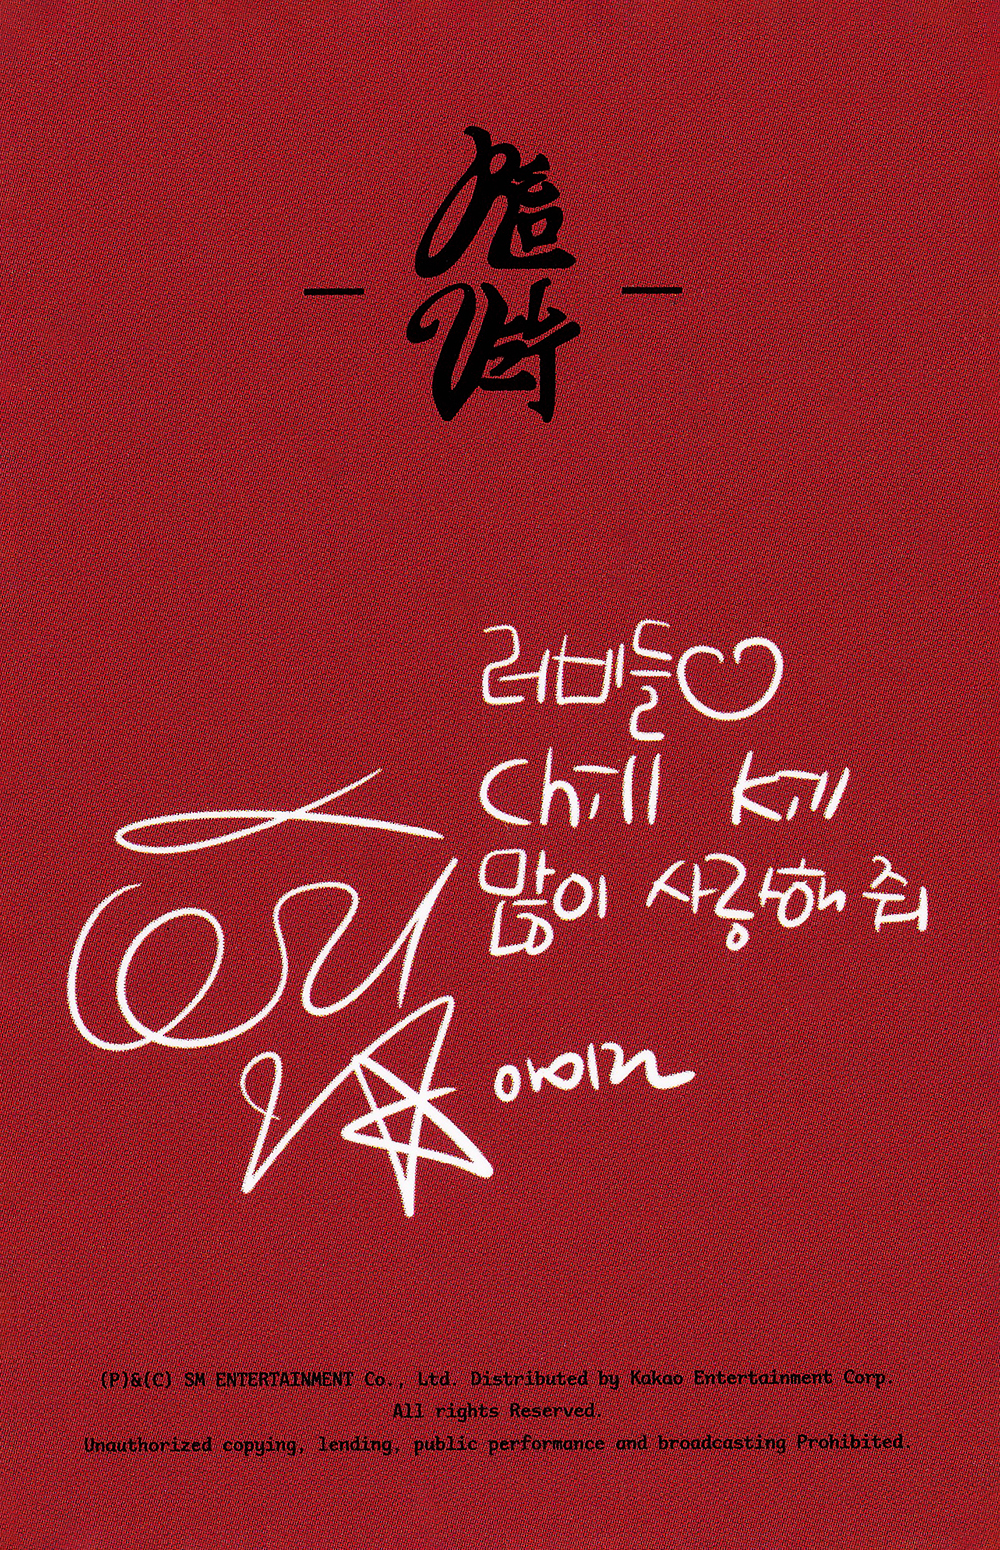 러비들♡
Chill Kill
많이 사랑해 줘
아이린
(P)&(C) SM ENTERTAINMENT Co., Ltd. Distributed by Kakao Entertainment Corp.
All rights Reserved.
Unauthorized copying, lending, public performance and broadcasting Prohibited.